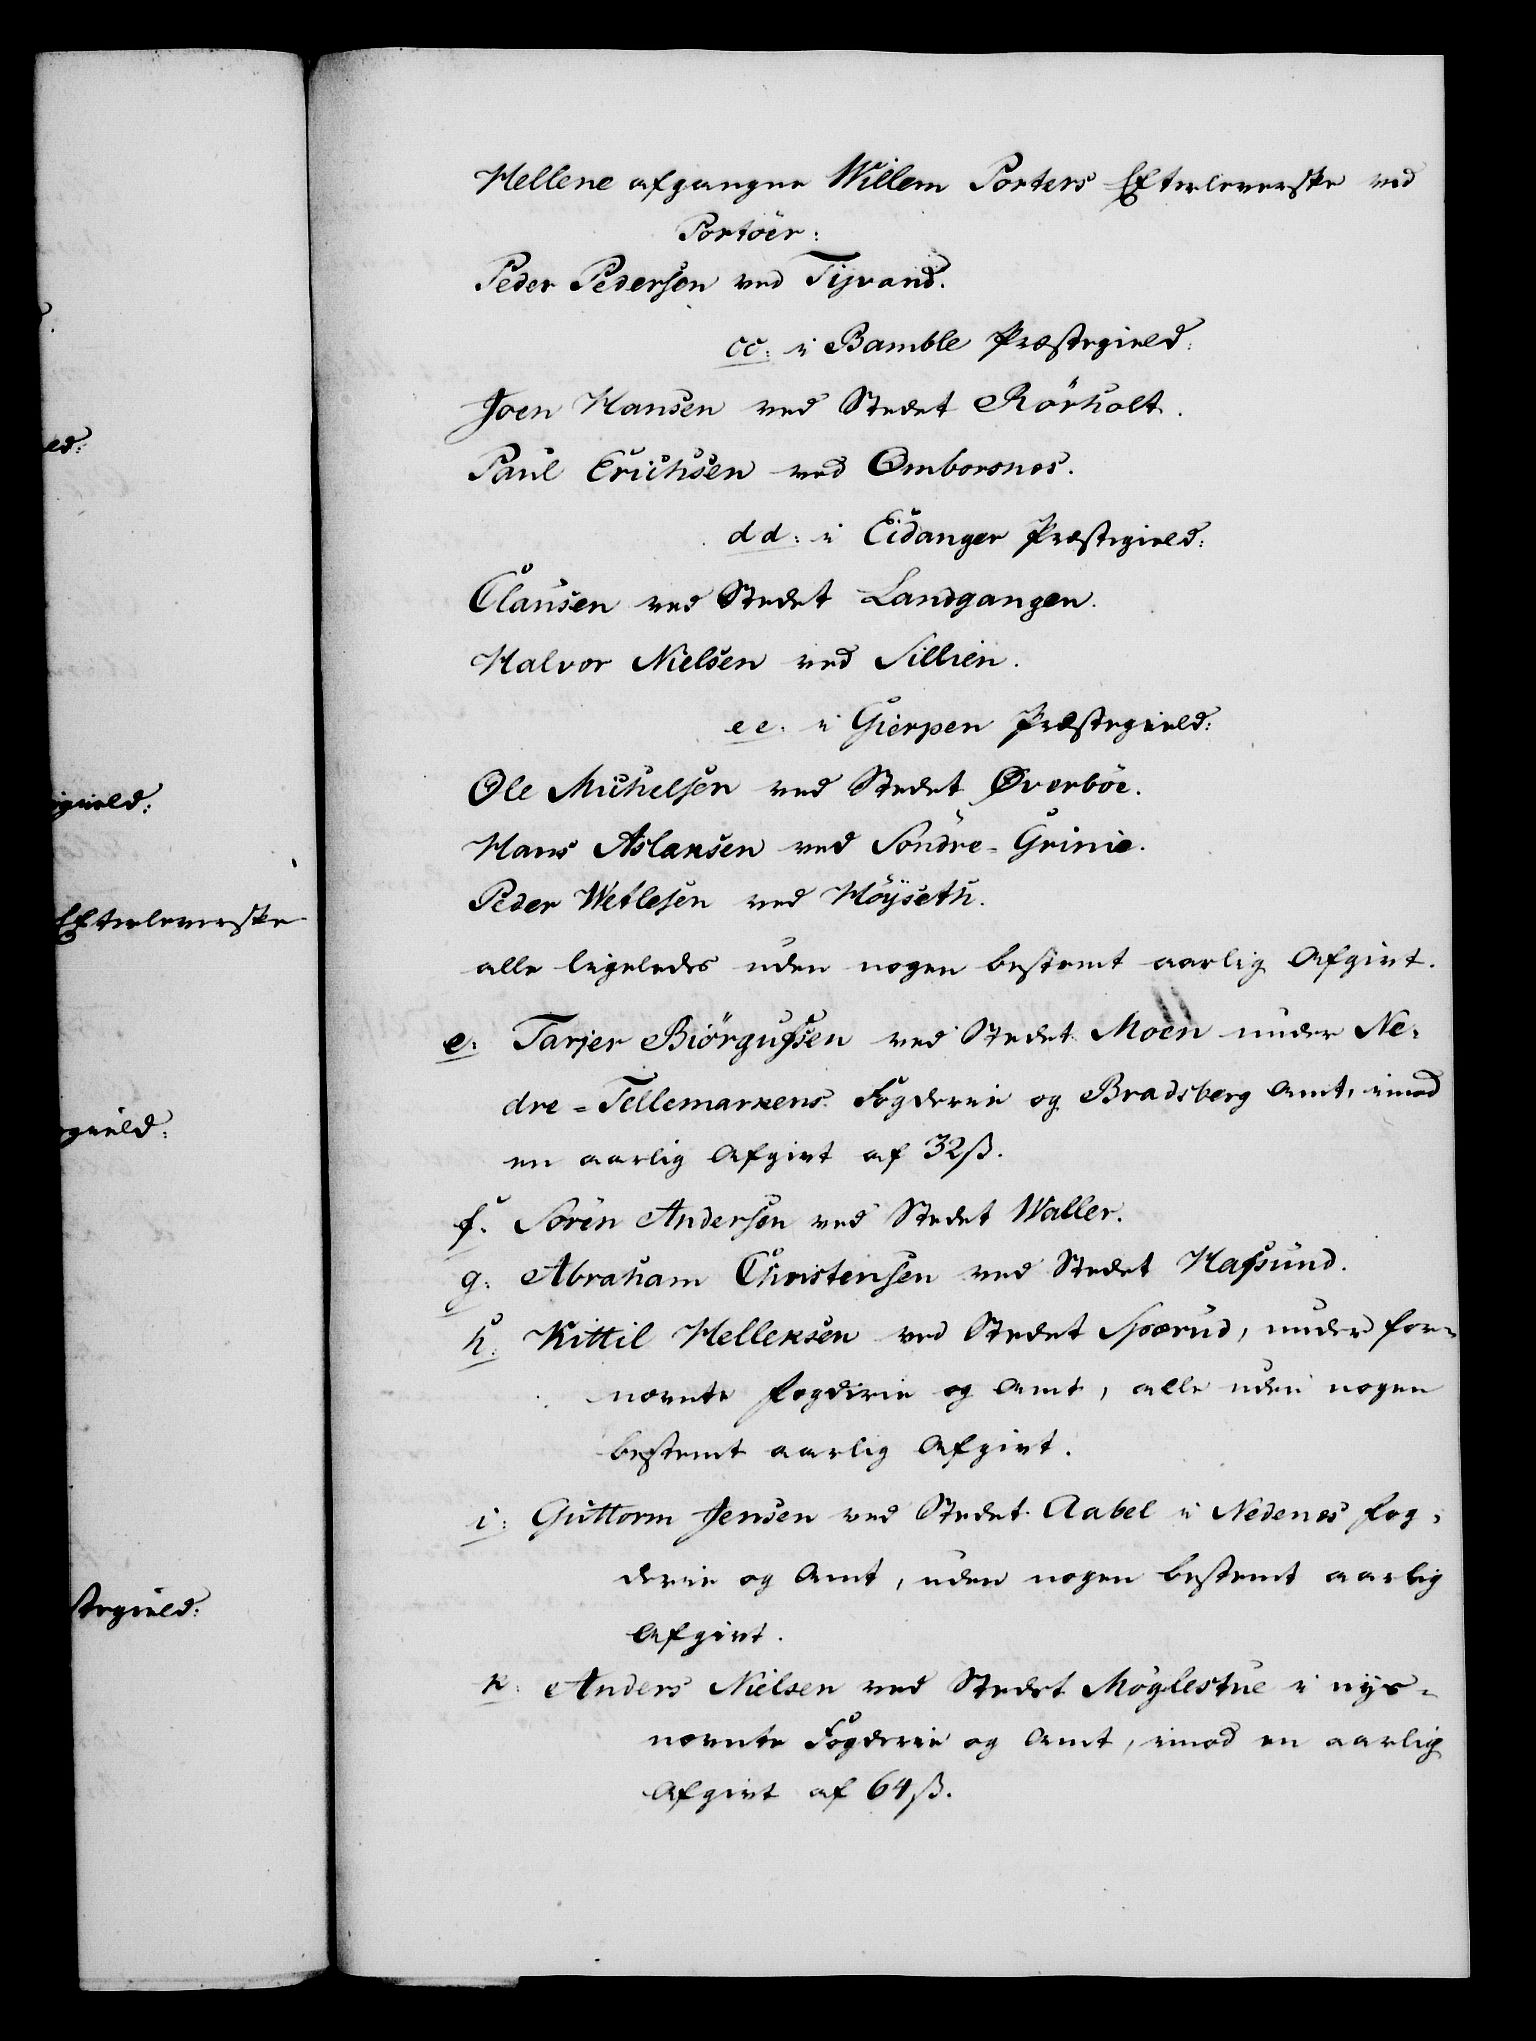 Hellene afgangne Willem Porters Efterleverske ved
Portöer:
Peder Pedersen ved Tisvand.
cc: i Bamble Præstegield:
Joen Hansen ved Stedet Rörholt.
Paul Erichsen ved Omborsnes.
dd: i Eidanger Præstegield:
Clausen ved Stedet Landgangen.
Halvor Nielsen ved Sillien.
ee: i Gierpen Præstegield:
Ole Michelsen ved Stedet Øverböe.
Hans Aslaksen ved Söndre-Grinie.
Peder Wetlesen ved Höÿseth.
alle ligeledes uden nogen bestemt aarlig Afgivt.
e: Tarjer Biörgufsen ved Stedet Moen under Ne-
dre-Tellemarkens Fogderie og Bradsberg Amt, imod
en aarlig Afgivt af 32 ß.
f. Sören Andersen ved Stedet Waller.
g: Abraham Christensen ved Stedet Hafsund.
h. Kittil Helleksen ved Stedet Sporud, under for-
nevnte Fogderie og Amt, alle uden nogen
bestemt aarlig Afgivt.
i: Guttorm Jensen ved Stedet Aabel i Nedenes Fog-
derie og Amt, uden nogen bestemt aarlig
Afgivt.
k: Anders Nielsen ved Stedet Möglestue i nys-
nevnte Fogderie og Amt, imod en aarlig
Afgivt af 64 ß.
ed:
gield:
Efterleverske
gield:
stegield: